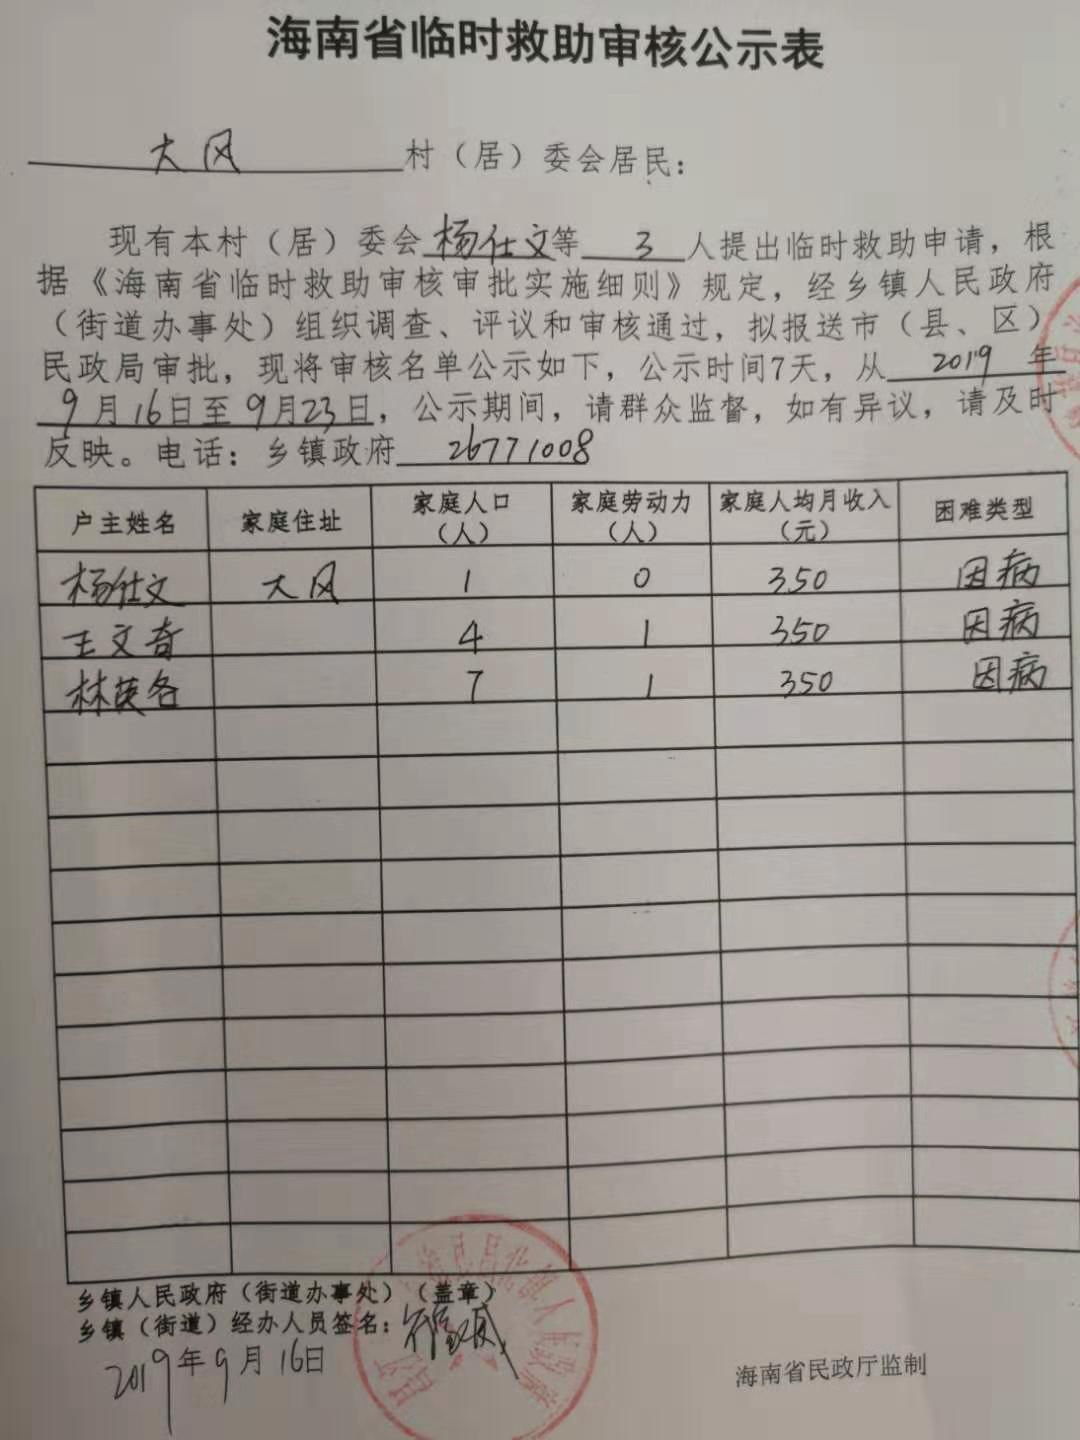 海南省临时救助审核公示表
大风村（居）委会居民：
现有本村（居）委会杨仕文等3人提出临时救助申请，根
据《海南省临时救助审核审批实施细则》规定，经乡镇人民政府
（街道办事处）组织调查、评议和审核通过，拟报送市（县、区）
民政局审批，现将审核名单公示如下，公示时间7天，从2019年
9月16日至9月23日，公示期间，请群众监督，如有异议，请及时
反映。电话：乡镇政府26771008
户主姓名 家庭住址 家庭人口（人） 家庭劳动力（人） 家庭人均月收入（元） 困难类型
杨仕文 大风 1 0 350 因病
王文奇 4 1 350 因病
林英各 7 1 350 因病
乡镇人民政府（街道办事处）（盖章）
乡镇（街道）经办人员签名：
2019年9月16日
海南省民政厅监制